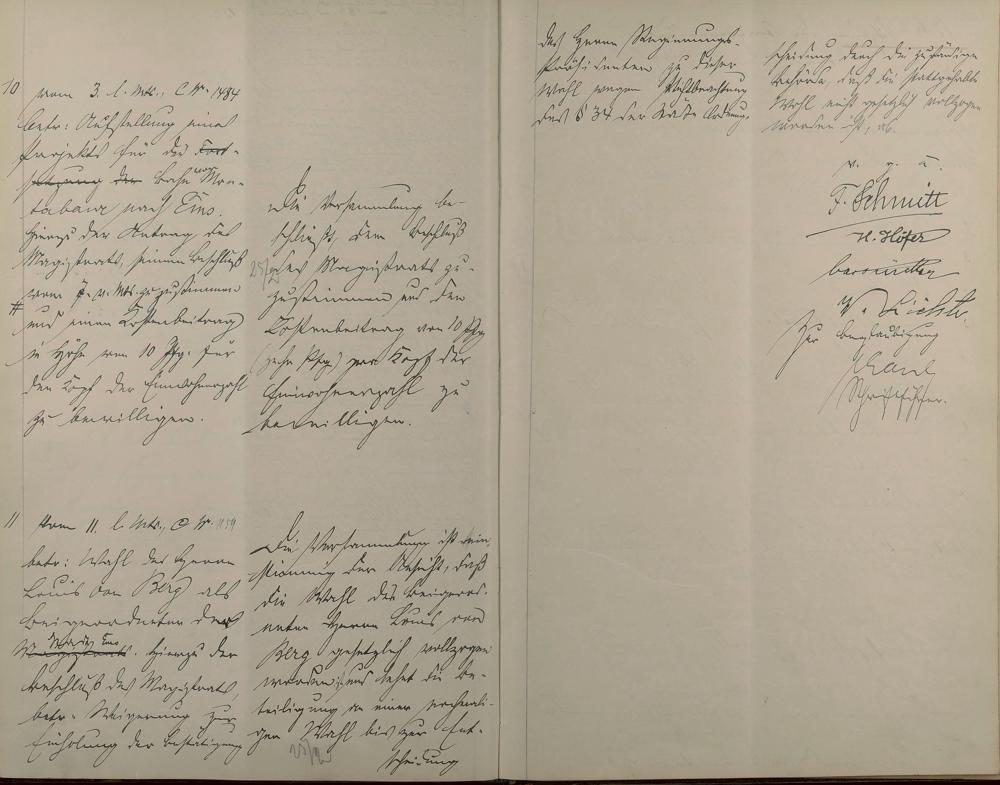 10 vom 3. l. Mts., C. Nr. 1484
betr: Aufstellung eines
Projekts für die Fort-
setzung der Bahn von Mon-
tabaur nach Ems.
Hierzu der Antrag des
Magistrats, seinem Beschluß
vom 7. v. Mts. zuzustimmen
# und einen Kostenbeitrag
in Höhe von 10 Pfg. für
den Kopf der Einwohnerzahl
zu bewilligen.
Die Versammlung be-
schließt, dem Beschluß
des Magistrats zu-
zustimmen und den
Kostenbeitrag von 10 Pfg
(zehn Pfg) pro Kopf der
Einwohnerzahl zu
bewilligen.
11 Vom 11. l. Mts., C. Nr.
betr: Wahl des Herrn
Louis von Berg als
Beigeordneter der
Stadt Ems
Magistrats. Hierzu der
Beschluß des Magistrats,
betr. Weigerung zur
Einholung der Bestätigung
Die Versammlung ist ein-
stimmig der Ansicht, daß
die Wahl des Beigeord-
neten Herrn Louis von
Berg gesetzlich vollzogen
worden ist und lehnt die Be-
teiligung an einer nochmali-
gen Wahl bis zur Ent-
scheidung
des Herrn Regierungs-
Präsidenten zu dieser
Wahl wegen Nichtbeachtung
des § 34 der Städte Ordnung.
scheidung durch die zuständige
Behörde, daß die stattgehabte
Wahl nicht gesetzlich vollzogen
worden ist, ab.
v. g. u.
F. Schmitt
H. Höfer
Zur Beglaubigung
Schriftführer.